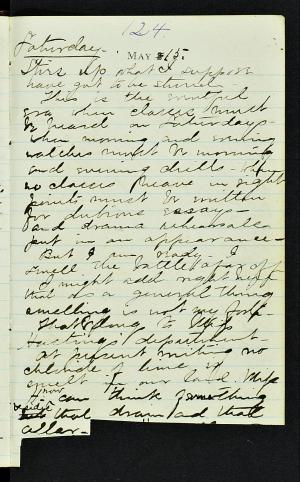 124
Saturday. MAY 15.
Stirs up what I suppose
have got to be stirred.
This is the
era when classes must
be heard on Saturdays -
when morning and evening
watches must be morning
and evening drills -
no classes in sight
points must be written
for dubious essays -
and drama rehearsals
put in an appearance -
But I am ready. I
smell the battle afar off
I might add right here
that as a general thing
smelling is not my forte -
That belongs to Miss
Hastings' department
At present writing no
chloride of lime is
smelt in our land. Miss
H. now can think of something
beside that drain and that
cellar -